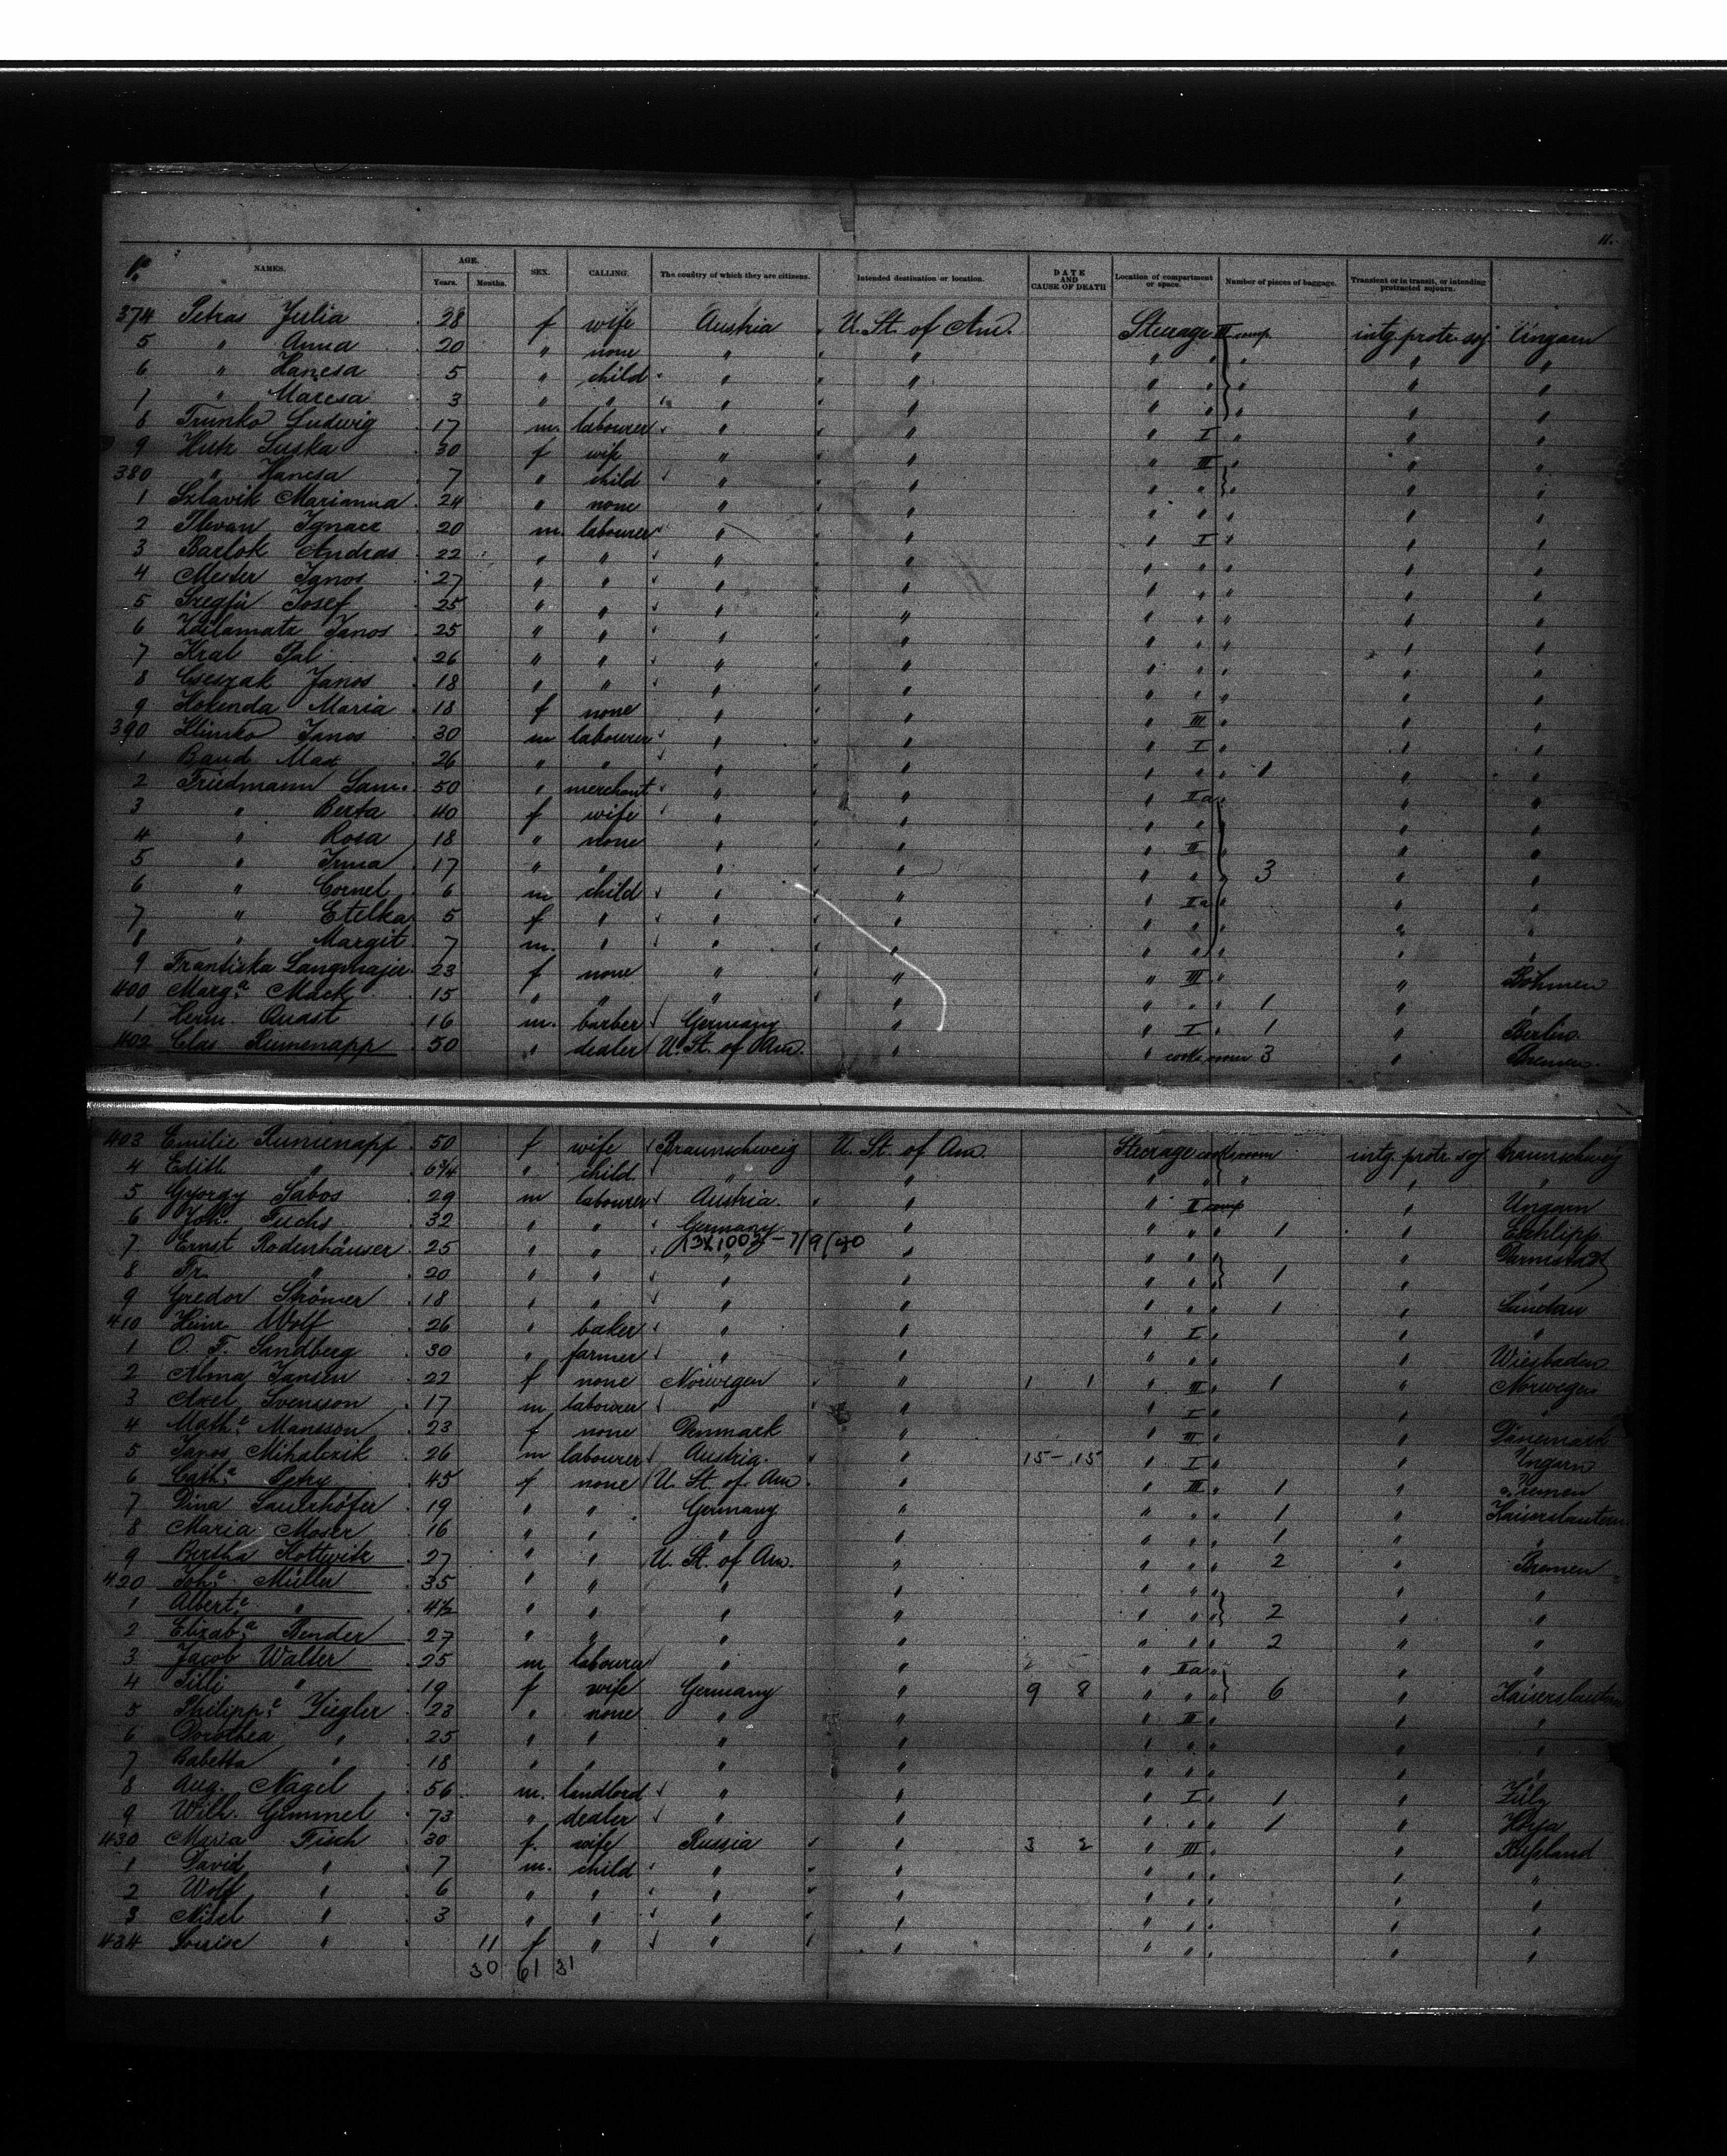 11.
No. NAMES. AGE. Years. Months. SEX. CALLING. The country of which they are citizens. Intended destination or location. DATE AND CAUSE OF DEATH Location of compartment or space. Number of pieces of baggage. Transient or in transit, or intending protracted sojourn.
374 Petras Julia 28 f wife Austria U. St. of Am. Steerage III comp. intg. protr. soj. Ungarn
5 " Anna 20 " none " " " " " " "
6 " Hancsa 5 " child " " " " " " "
7 " Marcsa 3 " " " " " " " " "
8 Trunko Ludwig 17 m. labourer " " " I " " "
9 Hutz Suska 30 f wife " " " III " " "
380 " Hancsa 7 " child " " " " " " "
1 Szlavik Marianna 24 " none " " " " " " "
2 Ilevan Ignacz 20 m. labourer " " " I " " "
3 Bartok Andras 22 " " " " " " " " "
4 Mester Janos 27 " " " " " " " " "
5 Szegfü Josef 25 " " " " " " " " "
6 Janos 25 " " " " " " " " "
7 Kral Pal 26 " " " " " " " " "
8 Cseszak Janos 18 " " " " " " " " "
9 Hokenda Maria 18 f none " " " III " " "
390 Klimko Janos 30 m labourer " " " I " " "
1 Band Max 26 " " " " " " " 1 " "
2 Friedmann Sam. 50 " merchant " " " IIa " " "
3 " Berta 40 f wife " " " " " " "
4 " Rosa 18 " none " " " III " " "
5 " Irma 17 " " " " " " 3 " "
6 " Cornel 6 m child " " " IIa " " "
7 " Etelka 5 f " " " " " " " "
8 " Margit 7 m. " " " " " " " "
9 Frantiska Langmajer 23 f none " " " III " " Böhmen
400 Marg.a Mack 15 " " " " " " " 1 " "
1 Herm. Quast 16 m. barber Germany " " I " 1 " Berlin
402 Clas Rumenapp 50 " dealer U. St. of Am. " " cooks room 3 " Bremen.
403 Emilie Rumenapp 50 f wife Braunschweig U. St. of Am. Steerage cooks room intg. protr. soj. Braunschweig
4 Edith " 6 3/4 " child " " " " " " "
5 György Sabos 29 m labourer Austria " " II comp " Ungarn
6 Joh. Fuchs 32 " " Germany " " " " 1 "
7 Ernst Rodenhäuser 25 " " " " " " " " Darmstadt
8 Fr. " 20 " " " " " " " 1 " "
9 Gredor Strömer 18 " " " " " " " 1 " Lindau
410 Heinr Wolf 26 " baker " " " I " " "
1 O. F. Sandberg 30 " farmer " " " " " " Wiesbaden
2 Alma Jansen 22 f none Norwegen " 1 1 " III " 1 " Norwegen
3 Axel Svensson 17 m labourer " " " I " " "
4 Math.e Mansson 23 f none Denmark " " III " " Dänemark
5 Janos Mihalczik 26 m labourer Austria " 15 - 15 " I " " Ungarn
6 Cath.a Petry 45 f none U. St. of Am. " " III " 1 " Bremen
7 Dina Sauerhöfer 19 " " Germany " " " " 1 " Kaiserslautern
8 Maria Moser 16 " " " " " " " 1 " "
9 Bertha Kottwitz 27 " " U. St. of Am. " " " " 2 " Bremen
420 Joh.e Müller 35 " " " " " " " " "
1 Albert.e " 4 1/2 " " " " " " " 2 " "
2 Elizab.a Bender 27 " " " " " " " 2 " "
3 Jacob Walter 25 m labourer " " " IIa " " "
4 Tilli " 19 f wife Germany " 9 8 " " " 6 " Kaiserslautern
5 Philipp.e Ziegler 23 " none " " " III " " "
6 Dorothea " 25 " " " " " " " " "
7 Babetta " 18 " " " " " " " " "
8 Aug. Nagel 56 m. landlord " " " I " 1 " Zülz
9 Wilh. Gimmel 73 " dealer " " " " " 1 " Hoya
430 Maria Fisch 30 f. wife Russia " 3 2 " III " " Rußland
1 David " 7 m. child " " " " " " "
2 Wolf " 6 " " " " " " " " "
3 Nisel " 3 " " " " " " " " "
434 Louise " 11 f " " " " " " " "
30 61 31